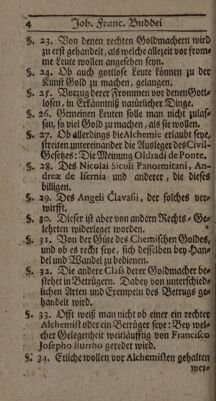 4 Joh. Franc. Buddei
§. 23. Von denen rechten Goldmachern wird
zu erst gehandelt, als welche allezeit vor from-
me Leute wollen angesehen seyn.
§. 24. Ob auch gottlose Leute können zu der
Kunst Gold zu machen, gelangen.
§. 25. Vorzug derer Frommen vor denen Gott-
losen, in Erkäntniß natürlicher Dinge.
§. 26. Gemeinen Leuten solle man nicht zulas-
sen, so viel Gold zu machen, als sie wollen.
§. 27. Ob allerdings die Alchemie erlaubt seye,
streiten untereinander die Ausleger des Civil-
Gesetzes: Die Meinung Oldradi de Ponte.
§. 28. Des Nicolai Siculi Panormitani, An-
dreæ de Isernia und anderer, die dieses
billigen.
§. 29. Des Angeli Clavasii, der solches ver-
wirfft.
§. 30. Dieser ist aber von andern Rechts-Ge-
lehrten widerleget worden.
§. 31. Von der Güte des Chemischen Goldes,
und ob es recht seye, sich desselben bey Han-
del und Wandel zu bedienen.
§. 32. Die andere Class derer Goldmacher be-
stehet in Betrügern. Dabey von unterschied-
lichen Arten und Exempeln des Betrugs ge-
handelt wird.
§. 33. Offt weiß man nicht ob einer ein rechter
Alchemist oder ein Betrüger seye: Bey wel-
cher Gelegenheit weitläufftig von Francisco
Josepho Burrho geredet wird.
§. 34. Etliche wollen vor Alchemisten gehalten
wer-